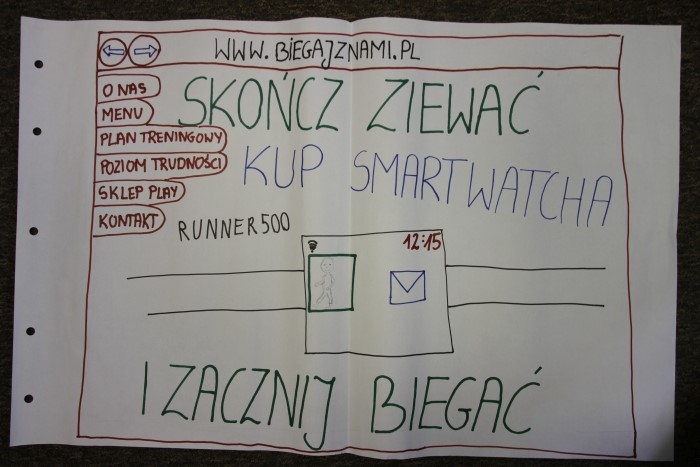 WWW.BIEGAJZNAMI.PL
O NAS
MENU
PLAN TRENINGOWY
POZIOM TRUDNOŚCI
SKLEP PLAY
KONTAKT
SKOŃCZ ZIEWAĆ
KUP SMARTWATCHA
RUNNER500
12:15
I ZACZNIJ BIEGAĆ